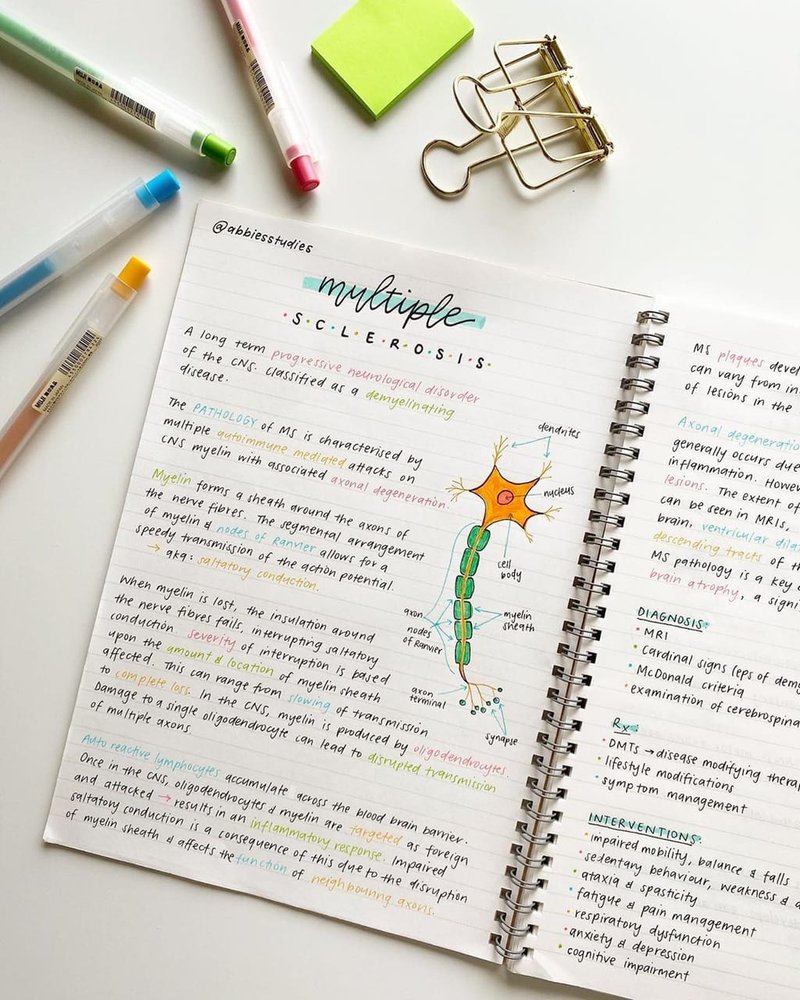 MUJ MORA
MUJ MORA
MUJ MORA
@abbiesstudies
multiple
·S·C·L·E·R·O·S·I·S·
A long term progressive neurological disorder
of the CNS. Classified as a demyelinating
disease.
The PATHOLOGY of MS is characterised by
multiple autoimmune mediated attacks on
CNS myelin with associated axonal degeneration.
Myelin forms a sheath around the axons of
the nerve fibres. The segmental arrangement
of myelin & nodes of Ranvier allows for a
speedy transmission of the action potential.
→ aka: saltatory conduction.
When myelin is lost, the insulation around
the nerve fibres fails, interrupting saltatory
conduction severity of interruption is based
upon the amount & location of myelin sheath
affected. This can range from slowing of transmission
to complete loss. In the CNS, myelin is produced by oligodendrocytes.
Damage to a single oligodendrocyte can lead to disrupted transmission
of multiple axons.
Auto reactive lymphocytes accumulate across the blood brain barrier.
Once in the CNS, oligodendrocytes & myelin are targeted as foreign
and attacked → results in an inflammatory response. Impaired
saltatory conduction is a consequence of this due to the disruption
of myelin sheath & affects the function of neighbouring axons.
dendrites
nucleus
cell
body
axon
nodes
of Ranvier
myelin
sheath
axon
terminal
synapse
MS plaques devel
can vary from in
of lesions in the
Axonal degeneratio
generally occurs due
inflammation. Howev
lesions. The extent of
can be seen in MRIs,
brain, ventricular dila
descending tracts of th
MS pathology is a key
brain atrophy, a signi
DIAGNOSIS:
• MRI
• Cardinal signs (eps of demy
• McDonald criteria
• examination of cerebrospina
Rx
• DMTs → disease modifying thera
• lifestyle modifications
• symptom management
INTERVENTIONS:
• impaired mobility, balance & falls
• sedentary behaviour, weakness & d
• ataxia & spasticity
• fatigue & pain management
• respiratory dysfunction
• anxiety & depression
• cognitive impairment